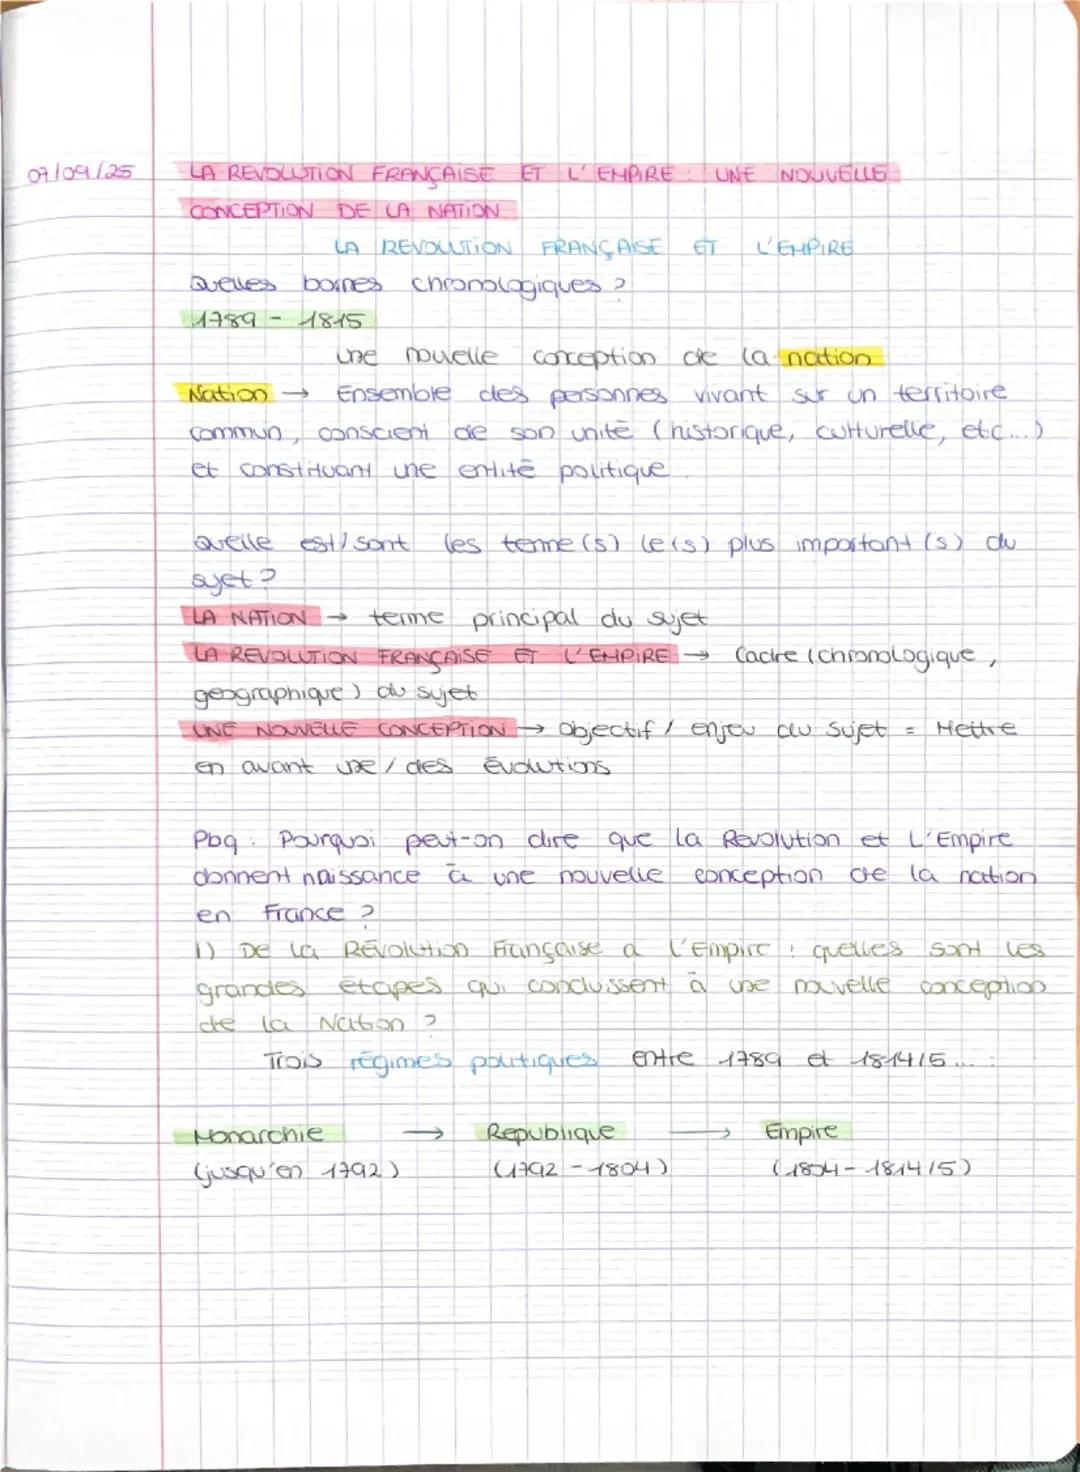 07/09/25 LA REVOLUTION FRANÇAISE ET L'EMPIRE : UNE NOUVELLE
CONCEPTION DE LA NATION
LA REVOLUTION FRANÇAISE ET L'EMPIRE
Quelles bornes chronologiques ?
1789 - 1815
une nouvelle conception de la nation
Nation → Ensemble des personnes vivant sur un territoire
commun, conscient de son unité (historique, culturelle, etc...)
et constituant une entité politique.
Quelle est/sont les terme(s) le(s) plus important(s) du
sujet ?
LA NATION → terme principal du sujet
LA REVOLUTION FRANÇAISE ET L'EMPIRE → Cadre (chronologique,
geographique) du sujet
UNE NOUVELLE CONCEPTION → Objectif / enjeu du sujet = Mettre
en avant une / des évolutions
Pbq : Pourquoi peut-on dire que la Revolution et L'Empire
donnent naissance à une nouvelle conception de la nation
en France ?
1) De la Révolution Française a l'Empire : quelles sont les
grandes étapes qui conduisent à une nouvelle conception
de la Nation ?
Trois régimes politiques entre 1789 et 1814/5... :
Monarchie → Republique → Empire
(jusqu'en 1792) (1792 - 1804) (1804 - 1814/5)